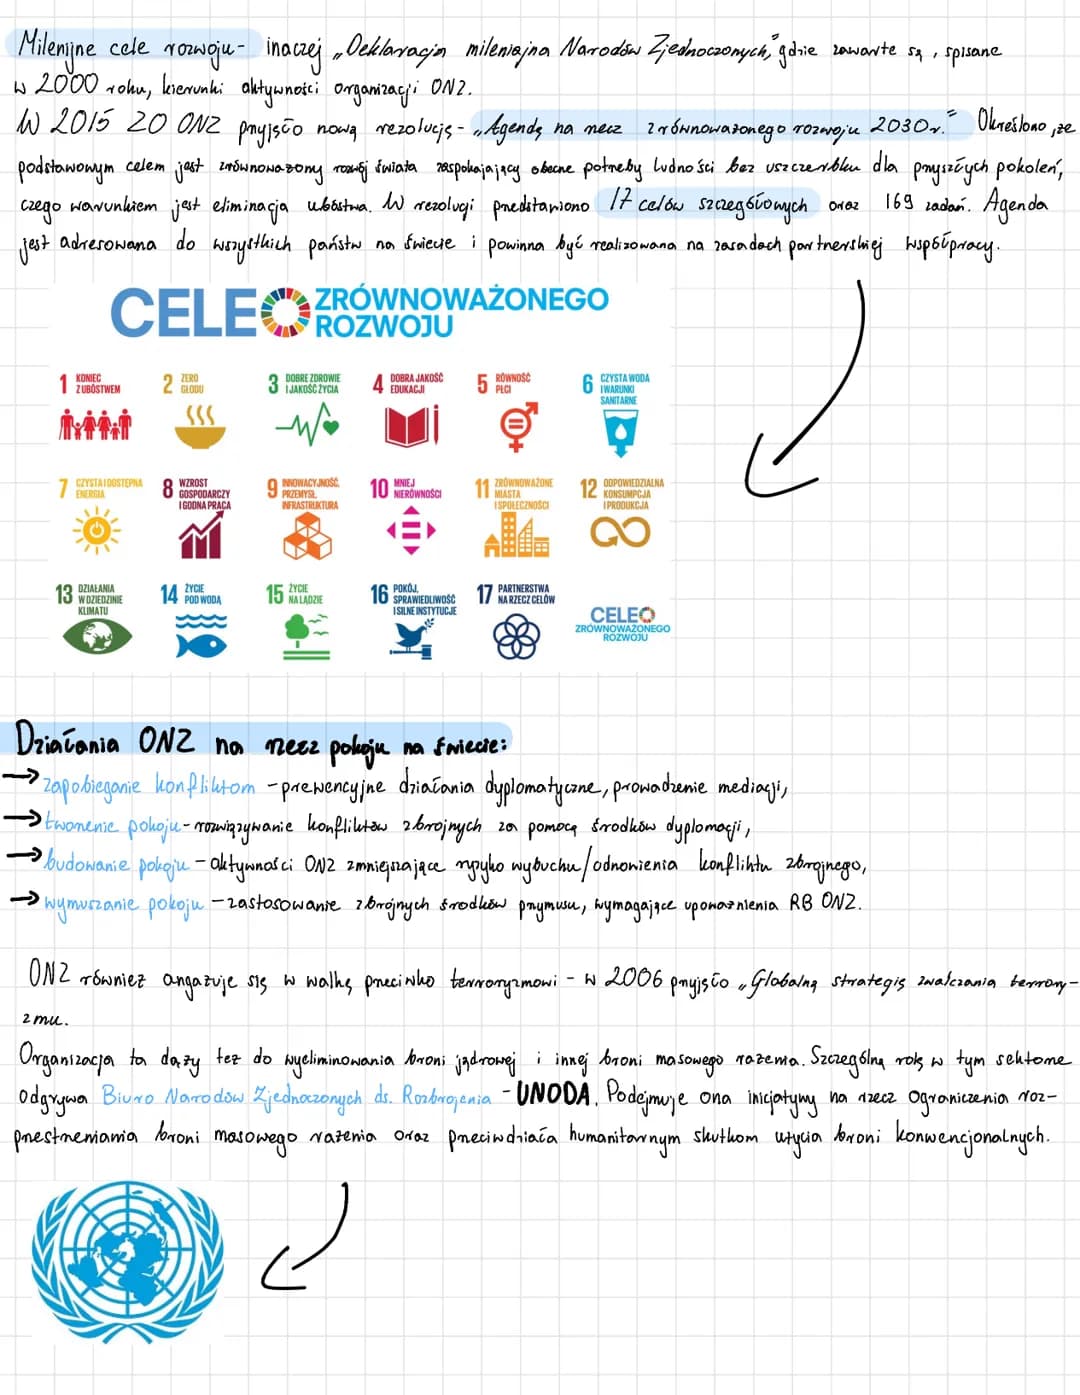 Milenijne cele rozwoju - inaczej „Deklaracja milenijna Narodów Zjednoczonych," gdzie zawarte są, spisane
w 2000 roku, kierunki aktywności organizacji ONZ.
W 2015 ZO ONZ przyjęło nową rezolucję - „Agendę na rzecz zrównoważonego rozwoju 2030r." Określono, że
podstawowym celem jest zrównoważony rozwój świata zaspokajający obecne potrzeby ludności bez uszczerbku dla przyszłych pokoleń,
czego warunkiem jest eliminacja ubóstwa. W rezolucji przedstawiono 17 celów szczegółowych oraz 169 zadań. Agenda
jest adresowana do wszystkich państw na świecie i powinna być realizowana na zasadach partnerskiej współpracy.
CELE ZRÓWNOWAŻONEGO
ROZWOJU
1 KONIEC Z UBÓSTWEM
2 ZERO GŁODU
3 DOBRE ZDROWIE I JAKOŚĆ ŻYCIA
4 DOBRA JAKOŚĆ EDUKACJI
5 RÓWNOŚĆ PŁCI
6 CZYSTA WODA I WARUNKI SANITARNE
7 CZYSTA I DOSTĘPNA ENERGIA
8 WZROST GOSPODARCZY I GODNA PRACA
9 INNOWACYJNOŚĆ, PRZEMYSŁ, INFRASTRUKTURA
10 MNIEJ NIERÓWNOŚCI
11 ZRÓWNOWAŻONE MIASTA I SPOŁECZNOŚCI
12 ODPOWIEDZIALNA KONSUMPCJA I PRODUKCJA
13 DZIAŁANIA W DZIEDZINIE KLIMATU
14 ŻYCIE POD WODĄ
15 ŻYCIE NA LĄDZIE
16 POKÓJ, SPRAWIEDLIWOŚĆ I SILNE INSTYTUCJE
17 PARTNERSTWA NA RZECZ CELÓW
CELE
ZRÓWNOWAŻONEGO
ROZWOJU
Działania ONZ na rzecz pokoju na świecie:
→ zapobieganie konfliktom - prewencyjne działania dyplomatyczne, prowadzenie mediacji,
→ tworzenie pokoju - rozwiązywanie konfliktów zbrojnych za pomocą środków dyplomacji,
→ budowanie pokoju - aktywności ONZ zmniejszające ryzyko wybuchu/odnowienia konfliktu zbrojnego,
→ wymuszanie pokoju - zastosowanie zbrojnych środków przymusu, wymagające upoważnienia RB ONZ.
ONZ również angażuje się w walkę przeciwko terroryzmowi - w 2006 przyjęło „Globalną strategię zwalczania terrory-
zmu.
Organizacja ta dąży też do wyeliminowania broni jądrowej i innej broni masowego rażenia. Szczególną rolę w tym sektorze
odgrywa Biuro Narodów Zjednoczonych ds. Rozbrojenia - UNODA. Podejmuje ona inicjatywy na rzecz ograniczenia roz-
przestrzeniania broni masowego rażenia oraz przeciwdziała humanitarnym skutkom użycia broni konwencjonalnych.